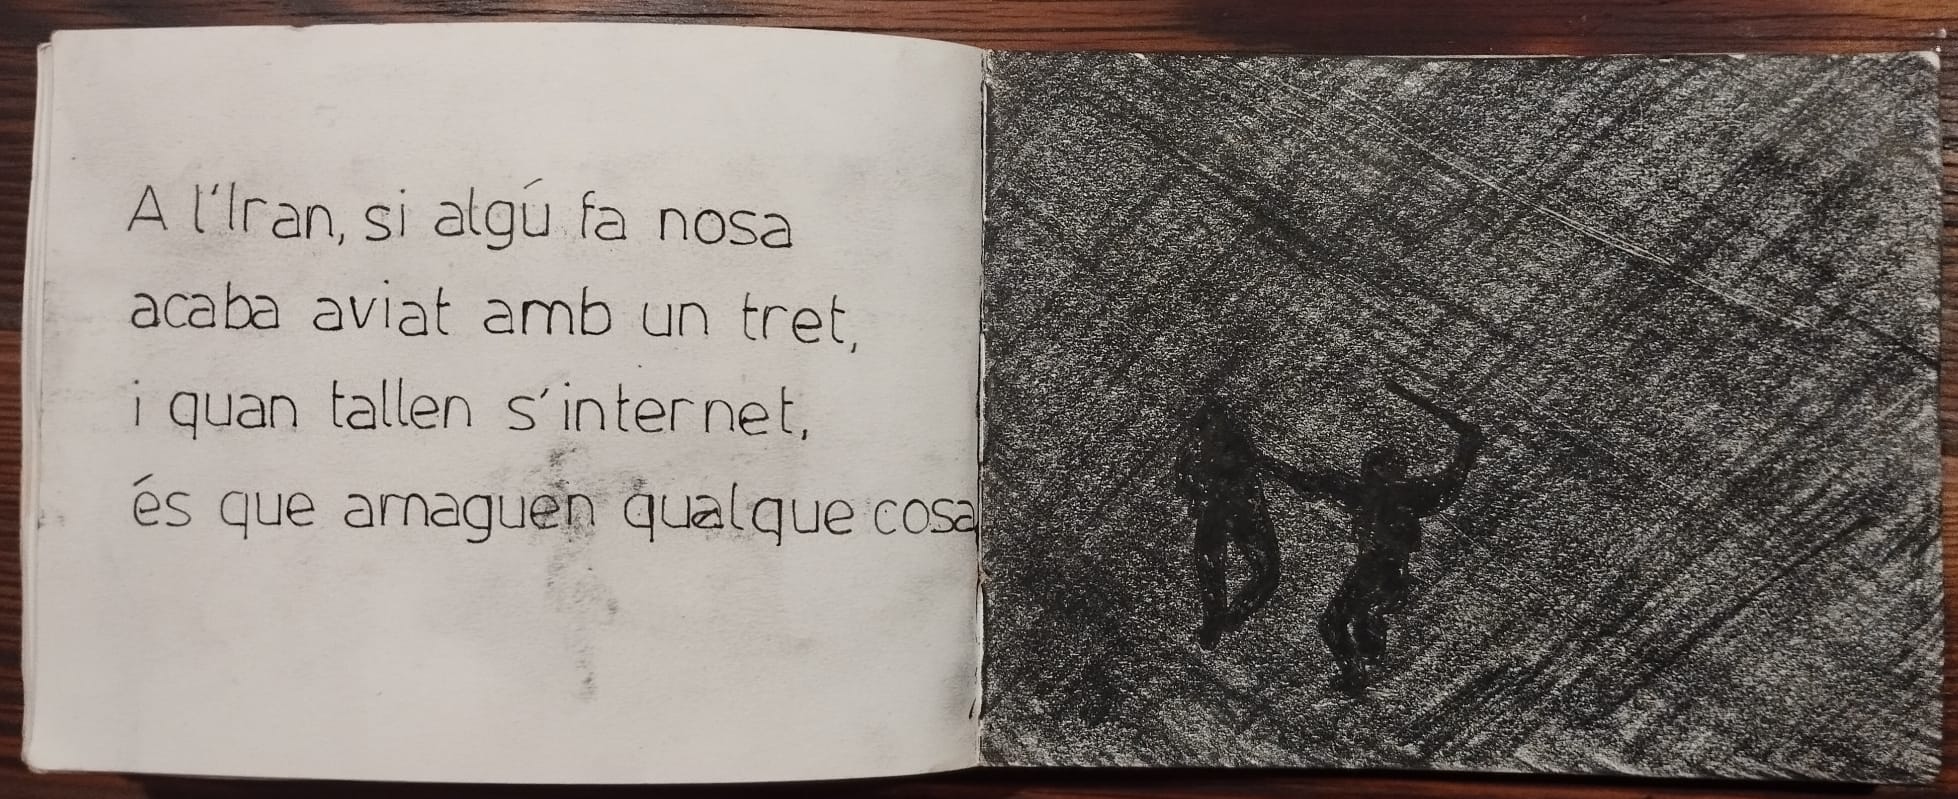 A l'Iran, si algú fa nosa
acaba aviat amb un tret,
i quan tallen s'internet,
és que amaguen qualque cosa